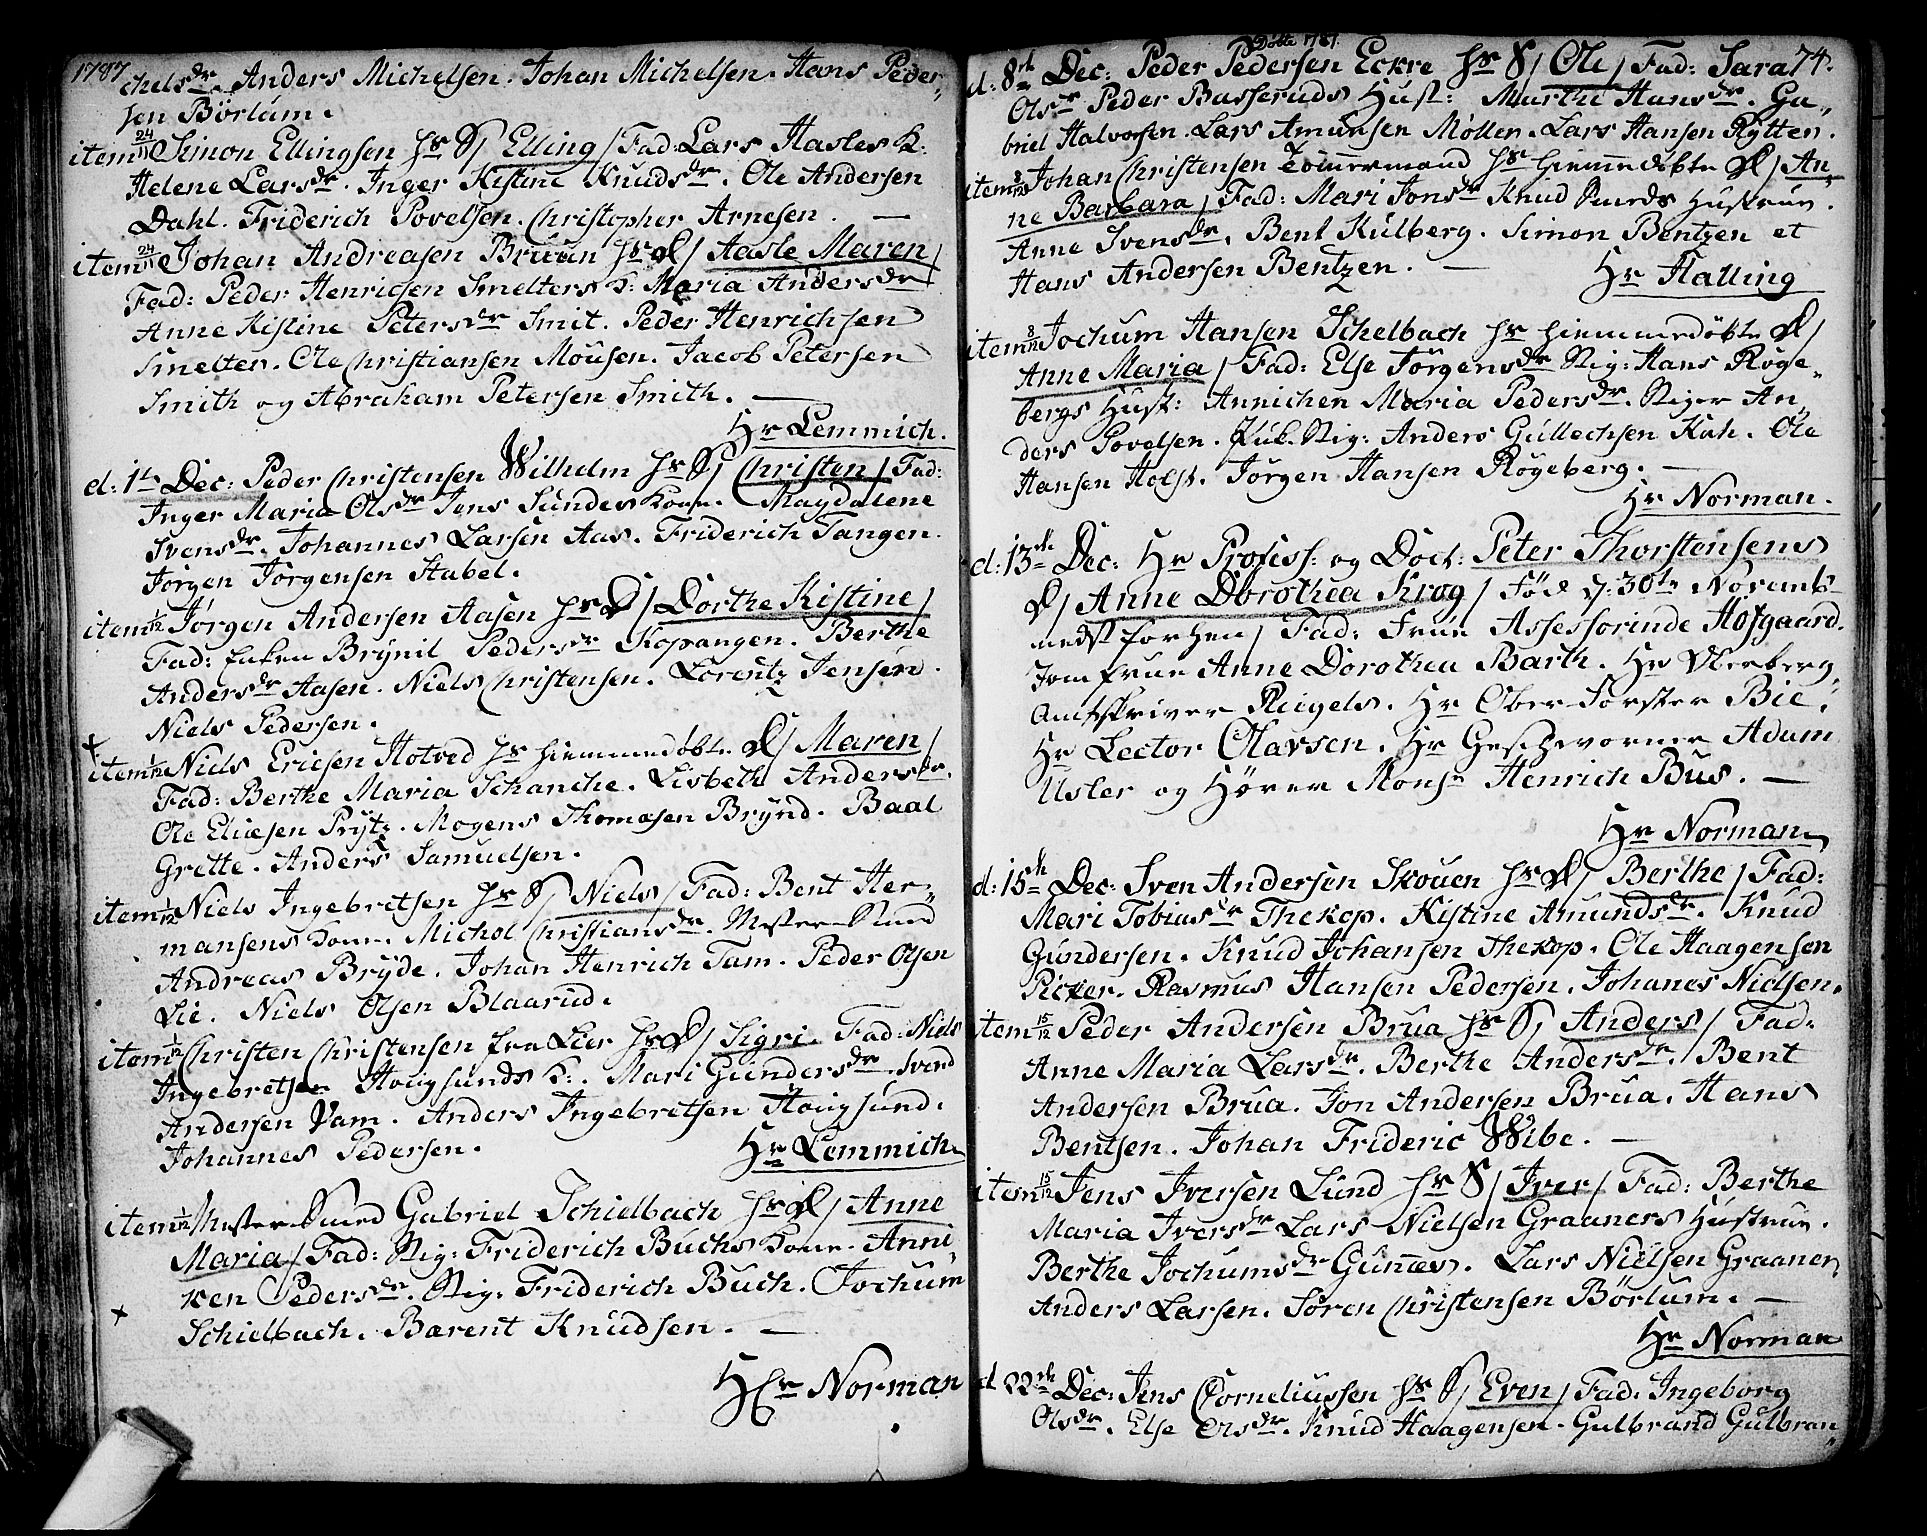 1787
chels dr. Anders Michelsen. Johan Michelsen. Hans Peder„
sen Börlum.
item 24/11 Simon Ellingsen hs S/ Elling / Fad: Lars Hasles K:
Helene Lars dr. Inger Kistine Knuds dr. Ole Andersen
Dahl. Friderich Povelsen. Christopher Arnesen. —
item 24/11 Johan Andreasen Bruun hs D/ Aasle Maren /
Fad: Peder Henricsen Smelters K: Maria Anders dr
Anne Kistine Peters dr Smit. Peder Henrichsen
Smelter. Ole Christiansen Mousen. Jacob Petersen
Smith og Abraham Petersen Smith. —
Hr Lemmich.
d: 1te Dec: Peder Christensen Wilhelm hs S/ Christen / Fad:
Inger Maria Ols dr Jens Sundes Kone. Magdalene
Svens dr. Johannes Larsen Aas. Friderich Tangen.
Jörgen Jörgensen Stabel.
item 1/12 Jörgen Andersen Aasen hs D/ Dorthe Kistine /
Fad: Enken Brynil Peders dr Kopangen. Berthe
Anders dr Aasen. Niels Christensen. Lorentz Jensen.
Niels Pedersen.
item 1/12 Niels Ericsen Hotved hs hiemmedøbte D/ Maren /
Fad: Berthe Maria Schanche. Lisbeth Anders dr.
Ole Eliæsen Prytz. Mogens Thomæsen Brynd. Baal
Grette. Anders Samuelsen.
item 1/12 Niels Ingebretsen hs S/ Niels / Fad: Bent Her„
mansens Kone. Michol Christians dr. Mester Smed
Andreas Bryde. Johan Henrich Tam. Peder Olsen
Lie. Niels Olsen Blaarud.
item 1/12 Christen Christensen fra Lier hs D/ Sigri. Fad: Niels
Ingebretsen Hougsunds K:. Mari Gunders dr. Svend
Andersen Vam. Anders Ingebretsen Hougsund.
Johannes Pedersen.
Hr Lemmich
item 1/12 Mester Smed Gabriel Schielbach hs D/ Anne
Maria / Fad: Stig: Friderich Buchs Kone. Anni„
ken Peders dr. Stig: Friderich Buch. Jochum
Schielbach. Barent Knudsen. —
Hr Norman
Döbte 1787.
74.
d: 8de Dec: Peder Pedersen Eckre hs S/ Ole / Fad: Sara
Ols dr Peder Basseruds Hust: Marthe Hans dr. Ga„
briel Halvorsen. Lars Amunsen Møller. Lars Hansen Rytter.
item 8/12 Johan Christensen Tömmermand hs hiemmedøbte D/ An„
ne Barbara / Fad: Mari Jons dr Knud Smeds Hustrue.
Anne Svens dr. Bent Kulberg. Simon Bentzen et
Hans Andersen Bentzen. —
Hr Halling
item 8/12 Jochum Hansen Schelbach hs hiemmedøbte D/
Anne Maria / Fad: Else Jörgens dr Stig: Hans Röge„
bergs Hust: Annichen Maria Peders dr. Stiger An„
ders Povelsen. Stig: Anders Gullechsen Kah. Ole
Hansen Holst. Jörgen Hansen Rögeberg. —
Hr Norman.
d: 13de Dec: Hr Profess: og Doct: Peter Thorstensens
D/ Anne Dorothea Krog / Föd d: 30te Novemb.
næst forhen / Fad: Frue Assessorinde Hofgaard.
Jomfrue Anne Dorothea Barth. Hr Overberg„
Amtskriver Riegels. Hr Ober Forster Bie.
Hr Lector Olavsen. Hr Geschevorner Adam
Usler og Hörer Monsr Henrich Bus. —
Hr Norman
d: 15de Dec: Sven Andersen Skouen hs D/ Berthe / Fad:
Mari Tobias dr Thekop. Kistine Amunds dr. Knud
Gundersen. Knud Johansen Thekop. Ole Haagensen
Picker. Rasmus Hansen Pedersen. Johanes Nielsen.
item 15/12 Peder Andersen Brua hs S/ Anders / Fad:
Anne Maria Lars dr. Berthe Anders dr. Bent
Andersen Brua. Jon Andersen Brua. Hans
Bentsen. Johan Frideric Wibe. —
item 15/12 Jens Iversen Lund hs S/ Iver / Fad: Berthe
Maria Ivers dr Lars Nielsen Graaners Hustrue.
Berthe Jochums dr Gunæs. Lars Nielsen Graaner
Anders Larsen. Sören Christensen Börlum. —
Hr Norman
d 22de Dec: Jens Corneliussen hs S/ Even / Fad: Ingeborg
Ols dr. Else Ols dr. Knud Haagensen. Gulbrand Gulbran„